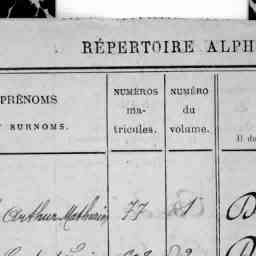 RÉPERTOIRE ALPH
PRÉNOMS
SURNOMS.
NUMÉROS
ma-
tricules.
NUMÉRO
du
volume.
Arthur Mathurin 77 1